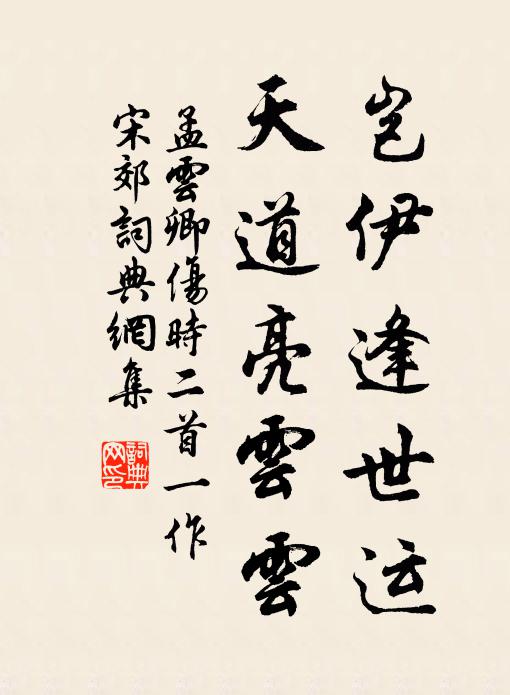 岂伊逢世运
天道亮雲雲
孟雲卿傷時二首一作
宋郊詞典網集
詞典网印